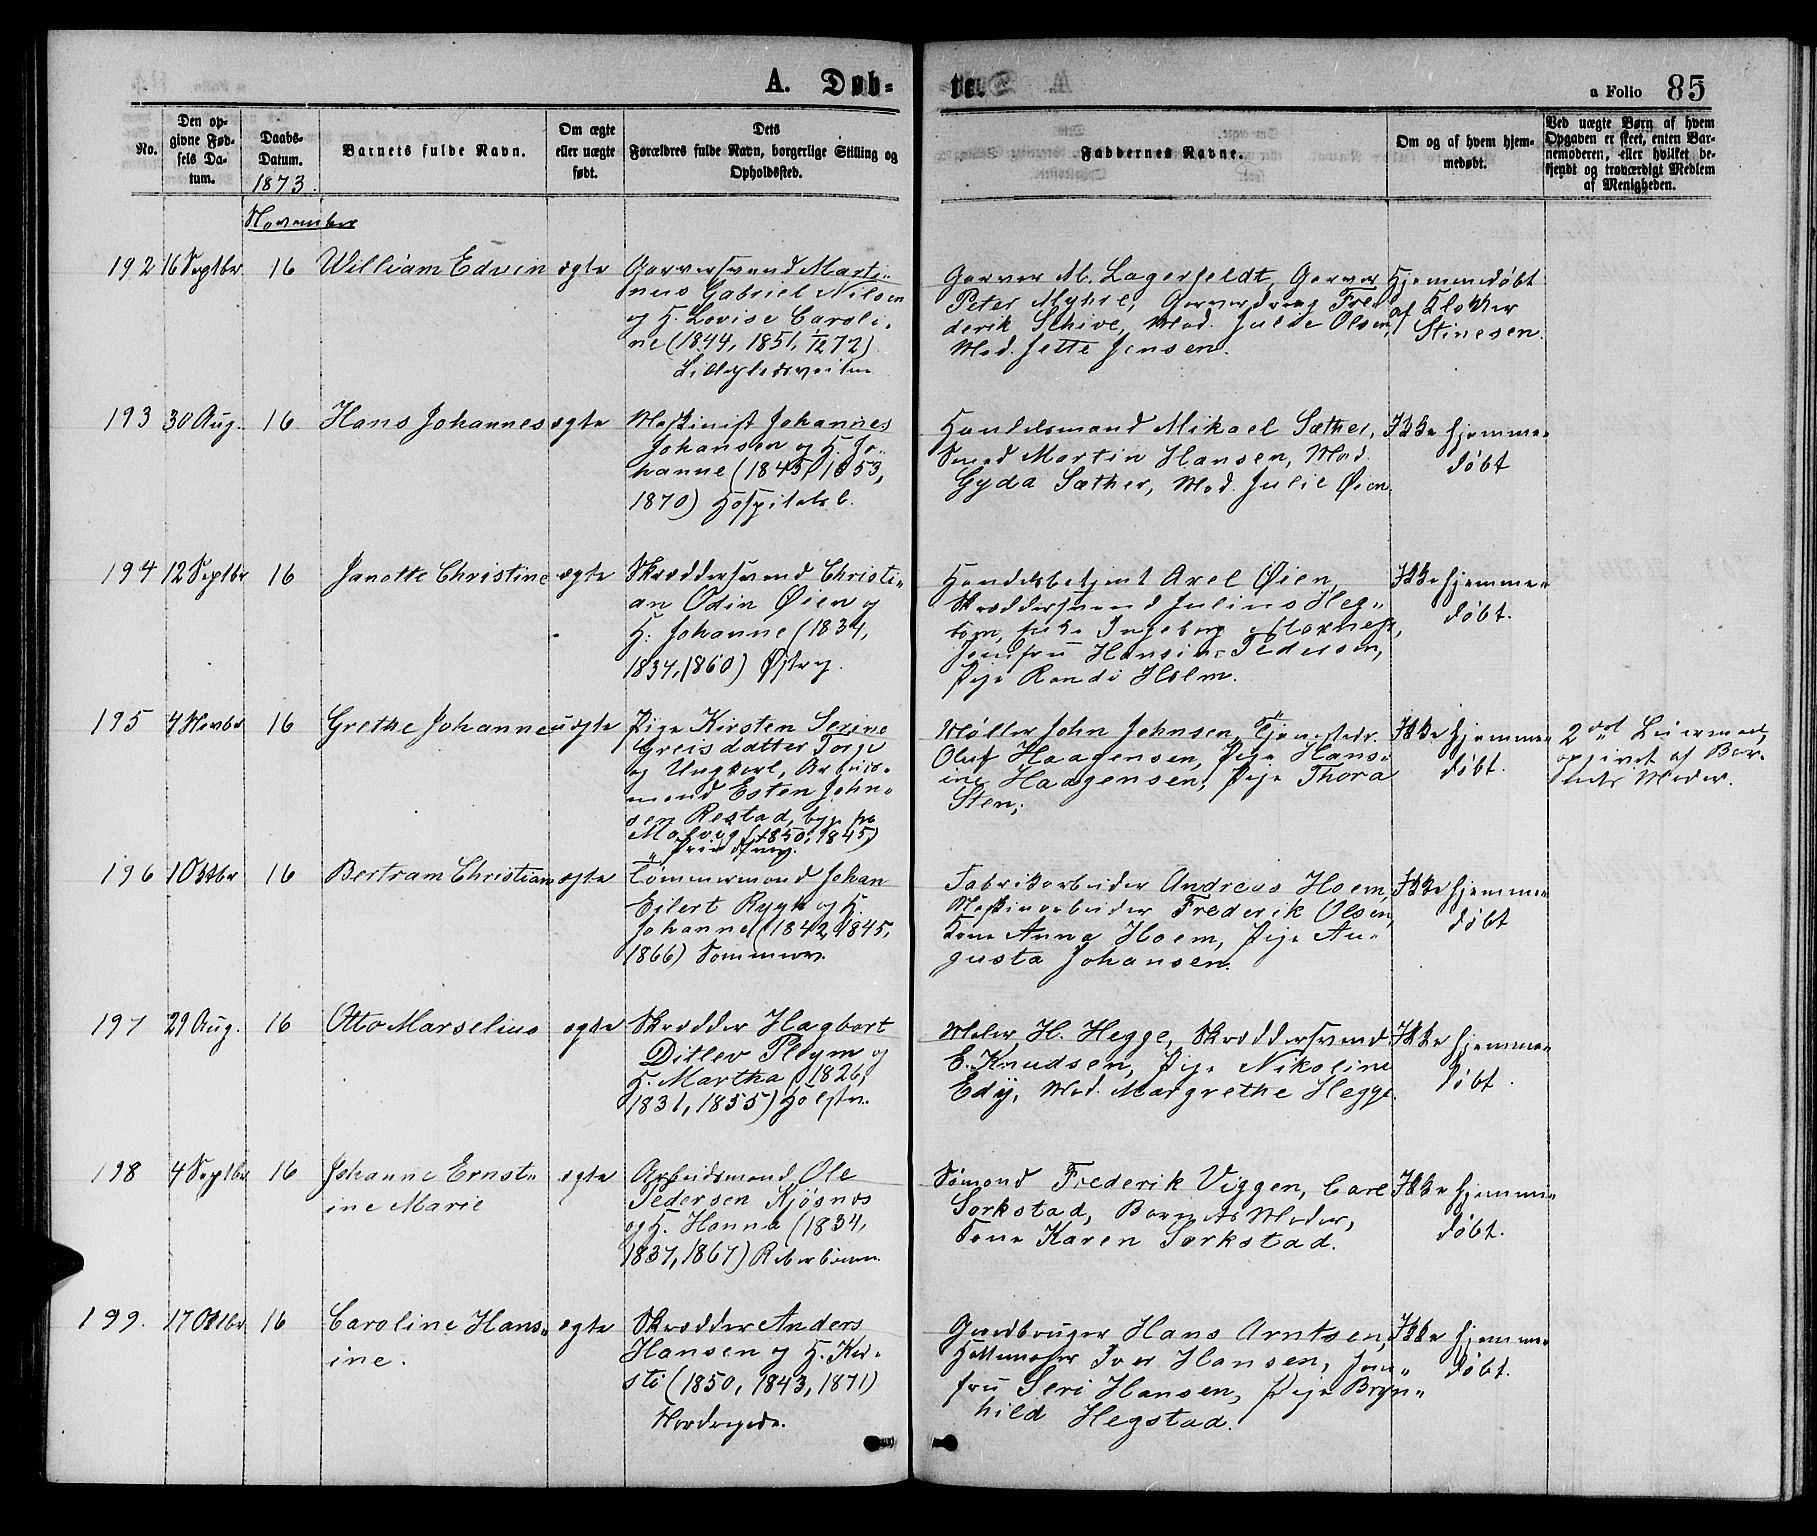 A. Døb-
te.
a Folio 85
No.
Den op-
givne Fød-
sels Da-
tum.
Daabs-
Datum.
1873.
Barnets fulde Navn.
Om ægte
eller uægte
født.
Dets
Forældres fulde Navn, borgerlige Stilling og
Opholdssted.
Faddernes Navne.
Om og af hvem hjem-
medøbt.
Ved uægte Børn af hvem
Opgaven er skeet, enten Bar-
nemoderen, eller hvilket be-
kjendt og troværdigt Medlem
af Menigheden.
November
192 16 Septbr 16 William Edvin ægte
Garversvend Marti-
nus Gabriel Nilsen
og H. Lovise Caroli-
ne (1844, 1851, 1/12 72)
Garver M. Lagerfeldt, Garver
Peter Myhre, Garverdreng Fre-
derik Schive, Mad. Julie Olsen,
Mad. Jette Jensen.
Hjemmedøbt
af Klokker
Stinesen.
193 30 Aug. 16 Hans Johannes ægte
Maskinist Johannes
Johansen og H. Jo-
hanne (1845, 1853,
1870) Hospitalsl.
Handelsmand Mikael Sæther,
Svend Martin Hansen, Mad.
Gyda Sæther, Mad. Julie Øien.
Ikke hjemme-
døbt
194 12 Septbr 16 Janette Christine ægte
Skræddersvend Christi-
an Odin Øien og
H. Johanne (1834,
1834, 1860) Østrg.
Handelsbetjent Axel Øien,
Skræddersvend Julius Heg-
Ingeborg
Jomfru Hansine Pedersen,
Pige Randi Holm.
Ikke hjemme-
døbt.
195 4 Novbr 16 Grethe Johanne uægte
Pige Kirsten Serine
Greisdatter Forge
og Ungkarl, Arbeids-
mand Esten John-
sen Restad, begge fra
Malvig (1850, 1845)
Møller John Johnsen, Tjenestedr.
Oluf Haagensen, Pige Hans-
ine Haagensen, Pige Thora
Sten;
Ikke hjemme-
døbt.
2det Leiermaal,
opgivet af Bar-
nets Moder.
196 1 Oktbr 16 Bertram Christian ægte
Tømmermand Johan
Eilert Rygh og H.
Johanne (1842, 1845,
1866) Sommerv.
Fabrikarbeider Andreas Hoem,
Maskinarbeider Frederik Olsen,
Kone Anna Hoem, Pige Au-
gusta Johansen.
Ikke hjemme-
døbt
197 29 Aug. 16 Otto Marselius ægte
Skrædder Hagbart
Ditlev Pleym og
H. Martha (1826,
1831, 1855)
Maler H. Hegge, Skræddersvend
E. Knudsen, Pige Nikoline
Edy, Mad. Margrethe Hegge.
Ikke hjemme-
døbt.
198 4 Septbr 16 Johanne Ernst-
ine Marie ægte
Arbeidsmand Ole
Pedersen Kjøsnæs
og H. Hanna (1834,
1837, 1867) Reberbanen.
Sømand Frederik Viggen, Carl
Sorkstad, Barnets Moder,
Kone Karen Sorkstad.
Ikke hjemme-
døbt.
199. 17 Oktbr 16 Caroline Hans-
ine. ægte
Skrædder Anders
Hansen og H. Ker-
sti (1850, 1843, 1871)
Nordregade.
Gaardbruger Hans Arntsen,
Hattemager Iver Hansen, Jom-
fru Seri Hansen, Pige Bryn-
hild Hegstad.
Ikke hjemme-
døbt.